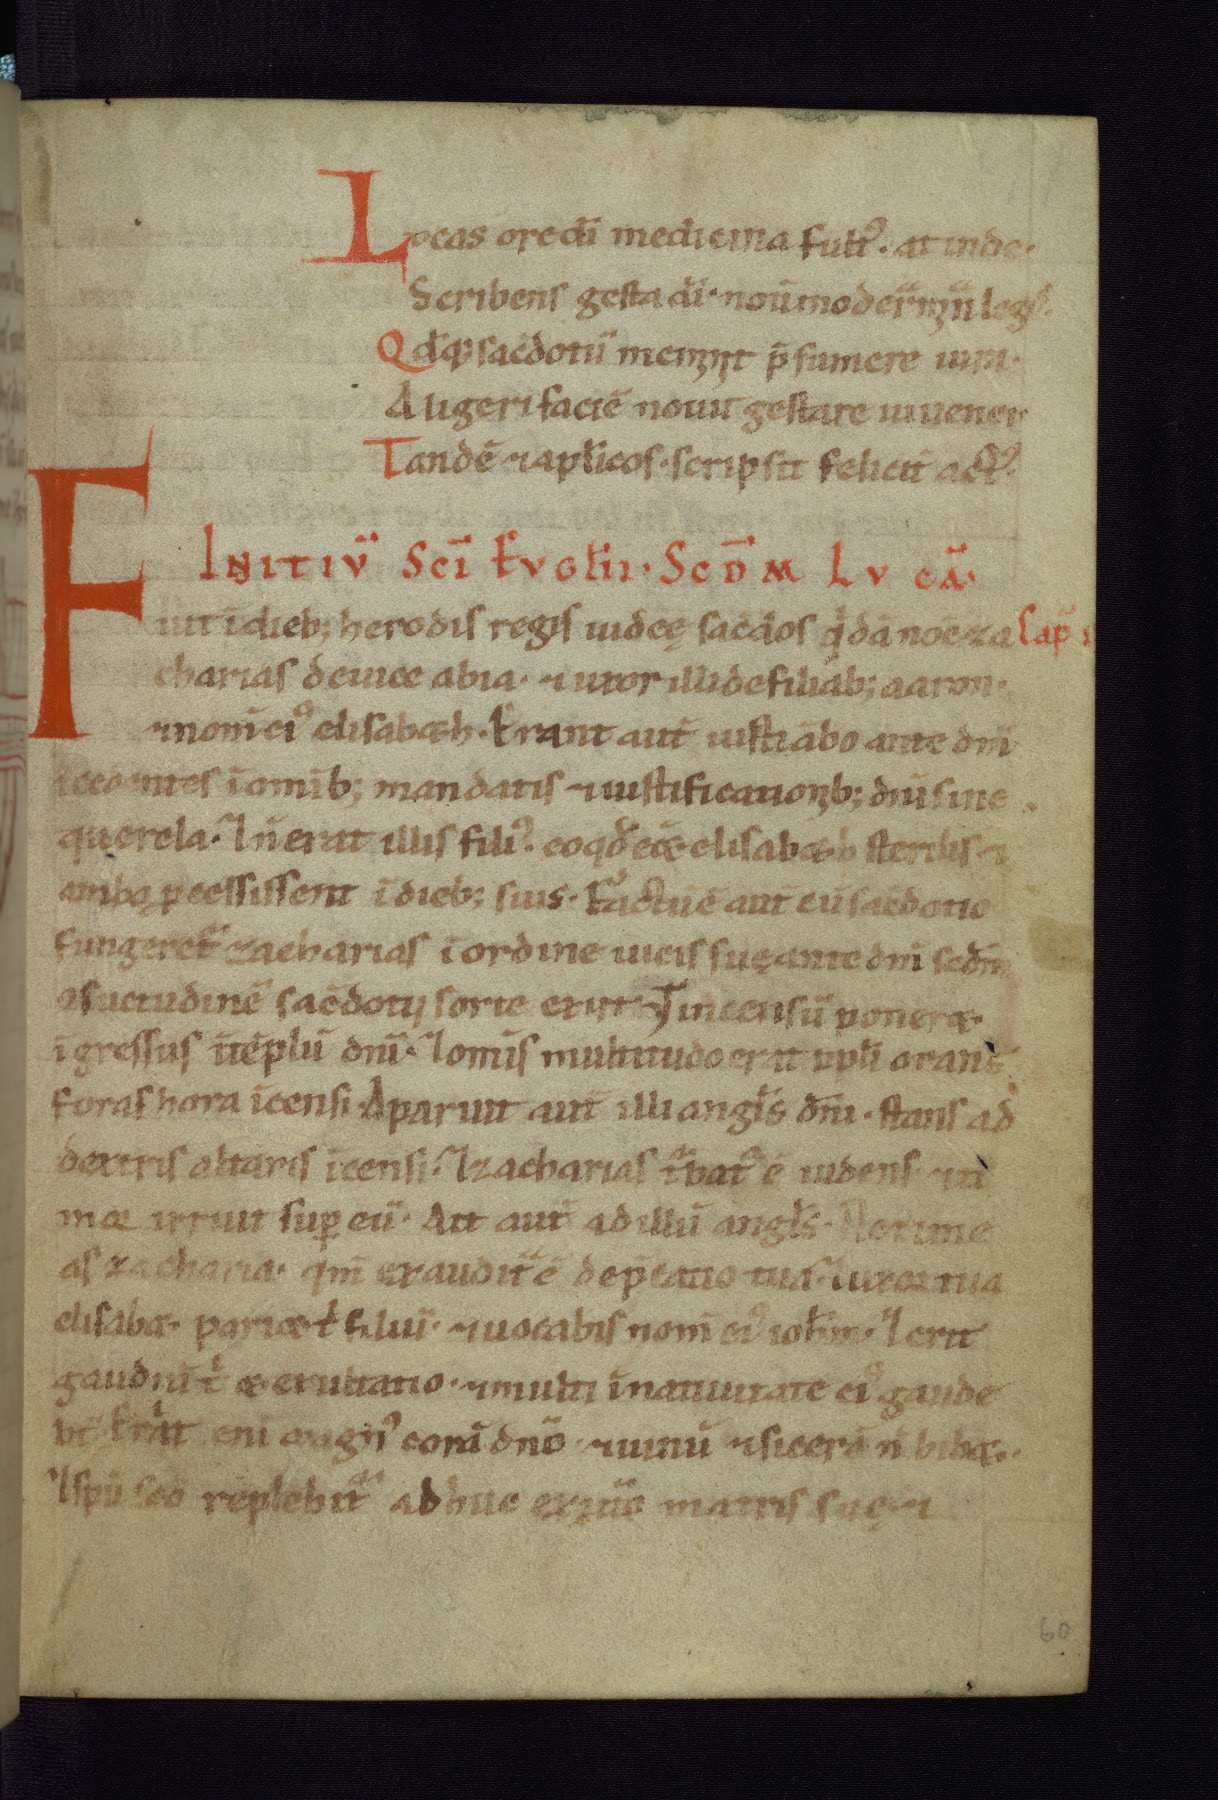 Lucas ore dī medicina fult᷒. at inde.
Scribens gesta dī. noūm moder̄ n̄ leg
Qd̄q; sac̄dotū mer̄nt p̄sumere uim.
Aligeri faciē nouit gestare iuuenci
Tandē ⁊ apl̄icos. scripsit feliciť act᷒.
INITIŪ SCĪ EVGL̄II. SCDM LVCĀ.
Fuit ī dieb; herodis regis iudeę sac̄dos q̇dā noē za Cap̄ i
charias de uice abia. ⁊ uxor illi de filiab; aaron.
⁊ nom̄ ei᷒ elisabæh. Erant aut̄ iusti ābo ante dm̄
īcedentes ī omīb; mandatis ⁊ iustificationib; dn̄i sine
querela. ⁊ n̄ erat illis fili᷒. eo qđ eēt elisabæh sterilis ⁊
ambo pcessissent ī dieb; suis. Factū ē aut̄ cū sac̄dotio
fungeret᷒ zacharias ī ordine uicis suę ante dm̄ secdm̄
ꝯsuetudinē sac̄dotij sorte exiit ut incensū poneræ.
īgressus ī tēplū dn̄i. ⁊ omīs multitudo erat ppl̄i orans
foras hora īcensi. Aparuit aut̄ illi angl̄s dn̄i. stans a d
dextris altaris īcensi. ⁊ zacharias t᷒bat᷒ ē uidens. ⁊ ti
mor irruit sup eū. Ait aut̄ ad illū angl̄s. Ne time
as zacharia. qm̄ exaudit᷒ ē dep̄catio tua. ⁊ uxor tua
elisabæ. pariæ t̄ filiū. ⁊ uocabis nom̄ ei᷒ ioh̄m. ⁊ erit
gaudiū t̄ æ exultatio. ⁊ multi ī natiuitate ei᷒ gaude
bt̄. Erit eni magn᷒ corā dn̄o. ⁊ uinū ⁊ sicerā n̄ bibæ.
⁊ spū sc̄o replebit᷒ adhuc ex utō matris suę. ⁊
60